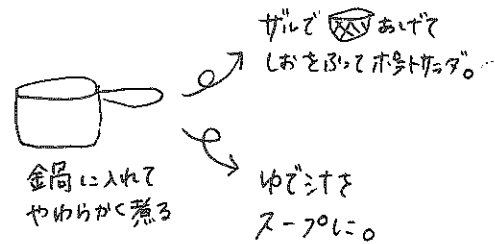 ザルで あげて
しおをふってポテトサラダ。
鍋に入れて
やわらかく煮る
ゆで汁を
スープに。